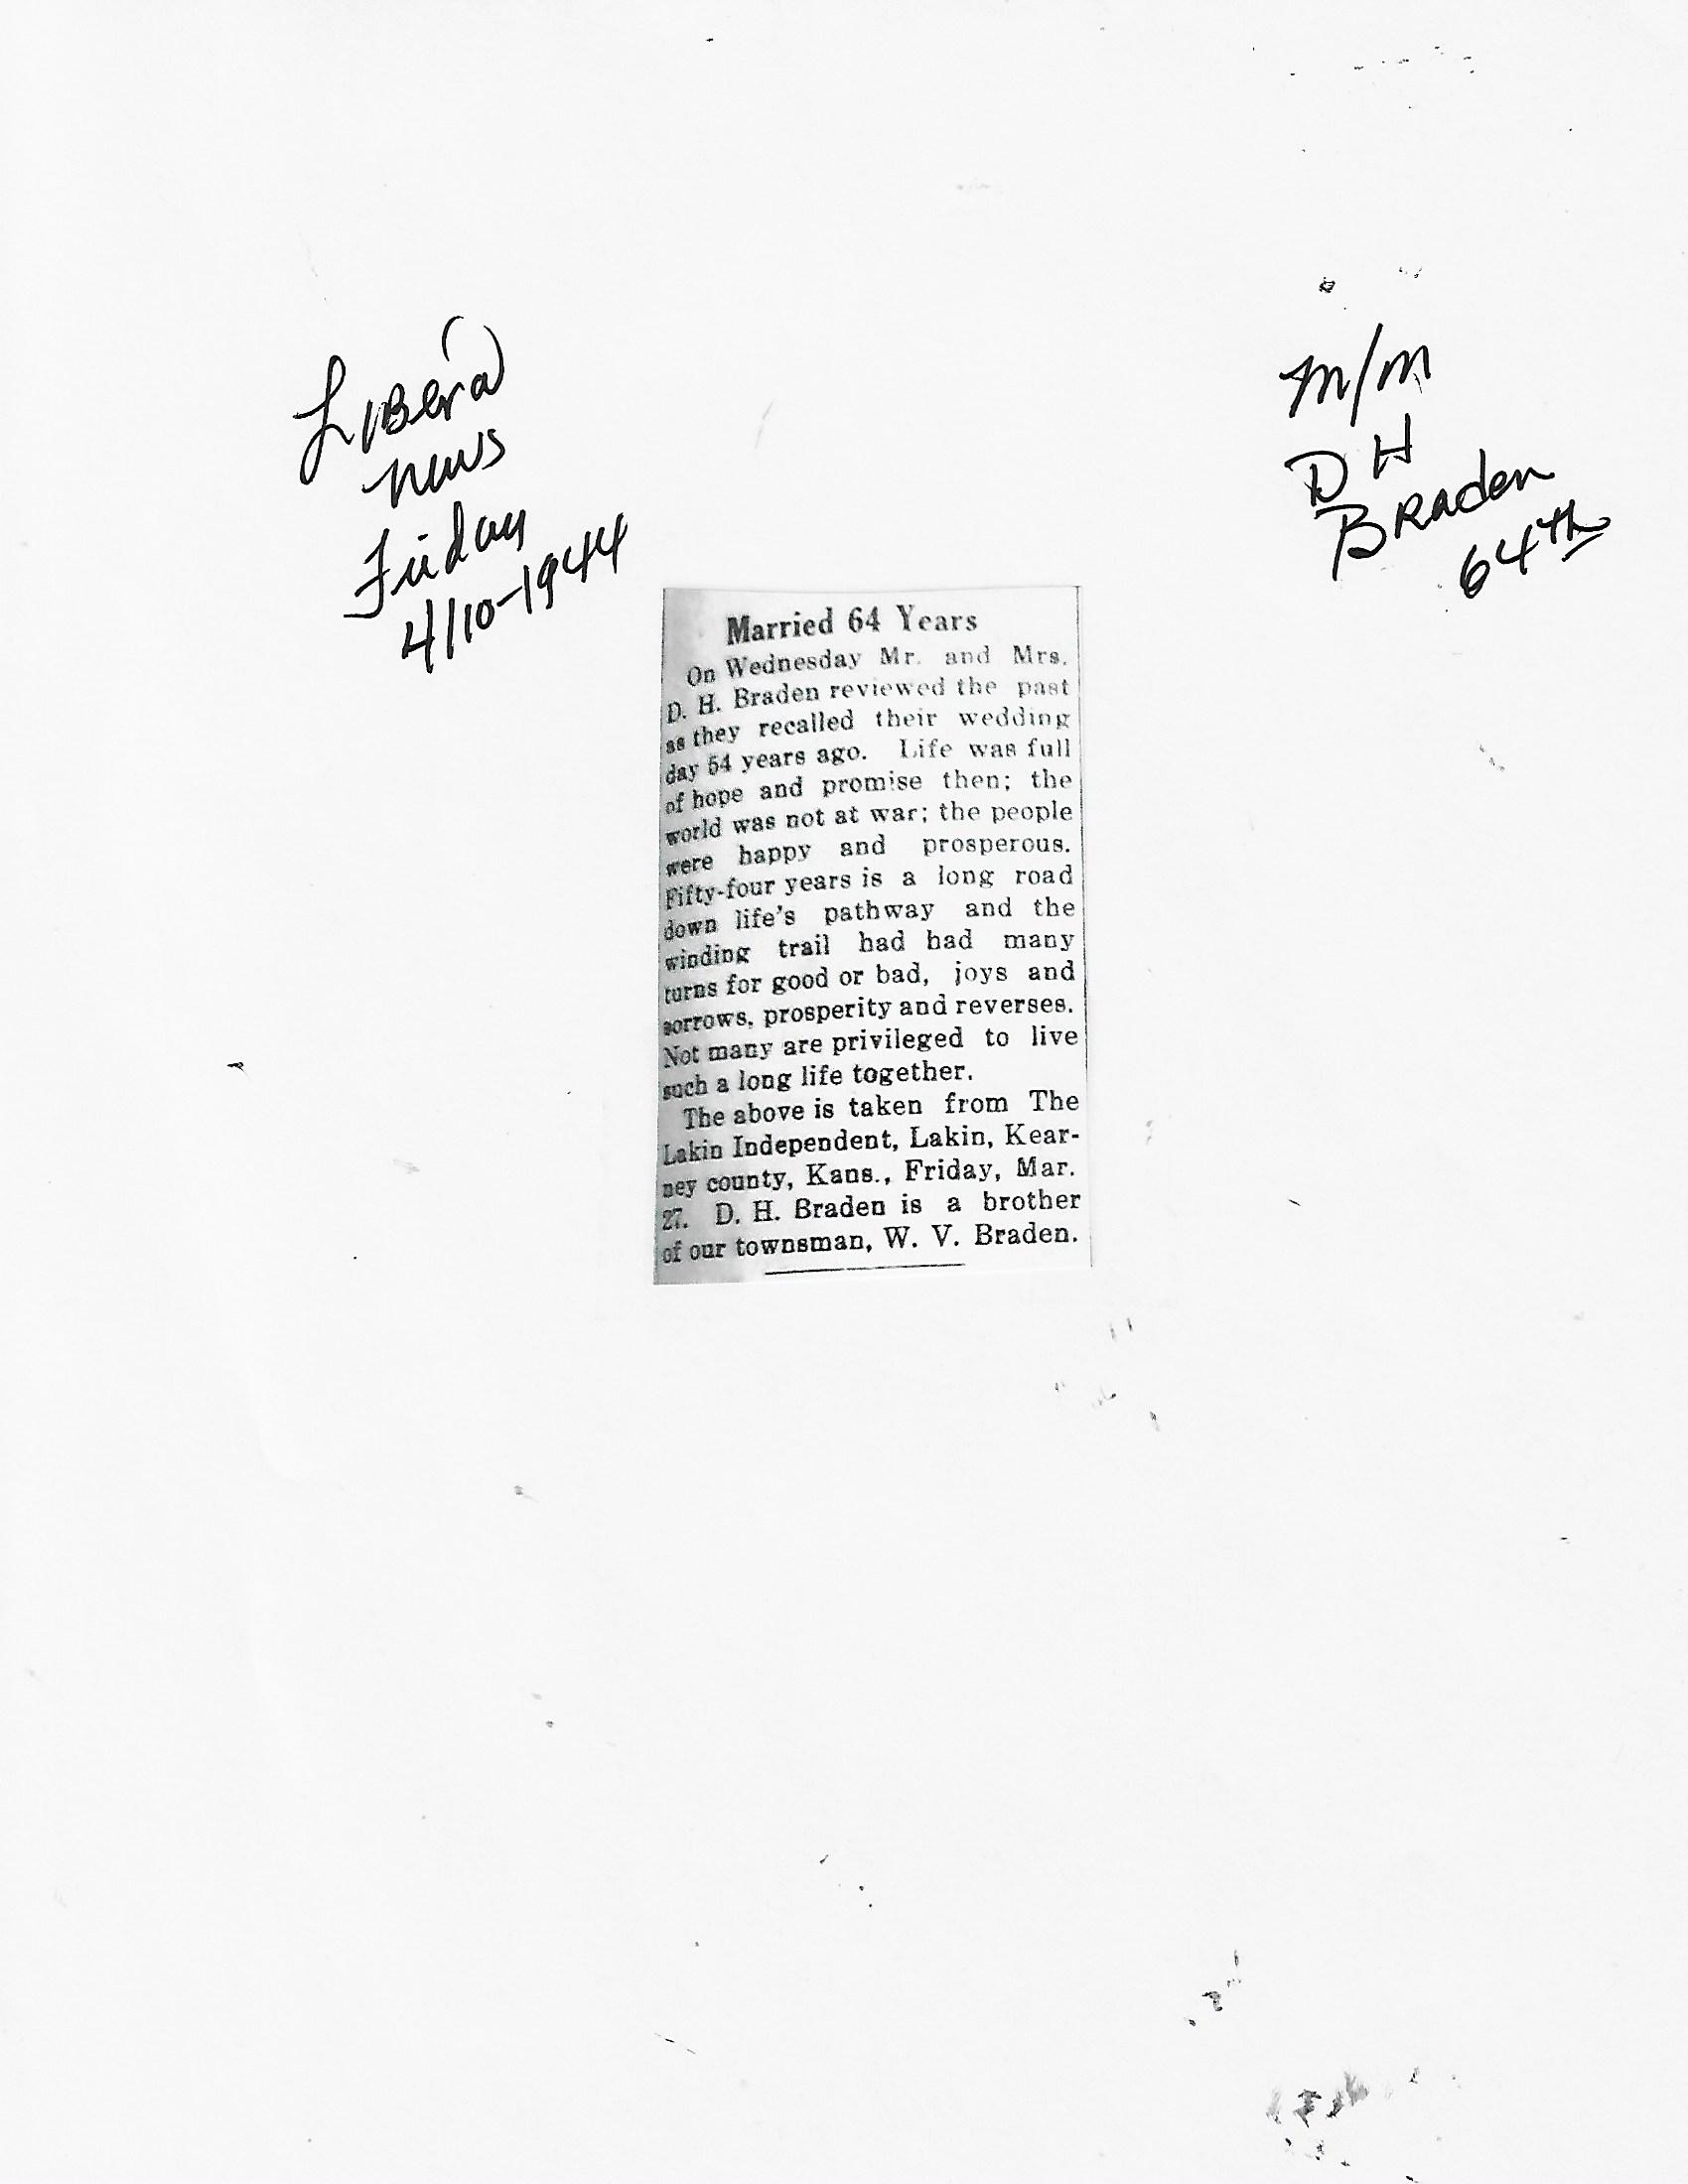 Liberal
News
Friday
4/10-1944
M/M
D H
Braden
64th
Married 64 Years
On Wednesday Mr. and Mrs.
D. H. Braden reviewed the past
as they recalled their wedding
day 54 years ago. Life was full
of hope and promise then; the
world was not at war; the people
were happy and prosperous.
Fifty-four years is a long road
down life's pathway and the
winding trail had had many
turns for good or bad, joys and
sorrows, prosperity and reverses.
Not many are privileged to live
such a long life together.
The above is taken from The
Lakin Independent, Lakin, Kear-
ney county, Kans., Friday, Mar.
27. D. H. Braden is a brother
of our townsman, W. V. Braden.